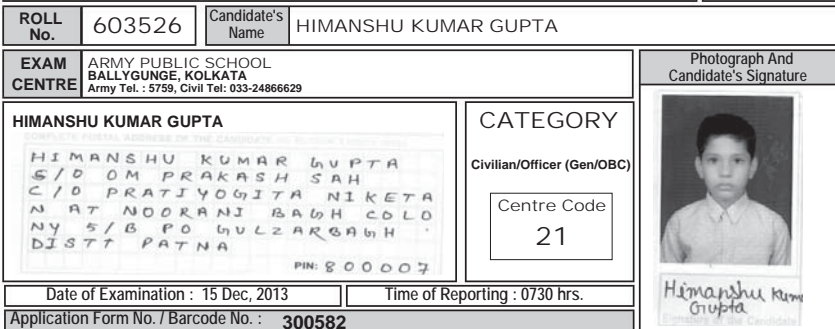 ROLL No. 603526 Candidate's Name HIMANSHU KUMAR GUPTA
EXAM CENTRE ARMY PUBLIC SCHOOL
BALLYGUNGE, KOLKATA
Army Tel. : 5759, Civil Tel: 033-24866629
Photograph And
Candidate's Signature
HIMANSHU KUMAR GUPTA
COMPLETE POSTAL ADDRESS OF THE CANDIDATE
HIMANSHU KUMAR GUPTA
S/O OM PRAKASH SAH
C/O PRATIYOGITA NIKETA
N AT NOORANI BAGH COLO
NY 5/B PO GULZARBAGH
DISTT PATNA
PIN: 800007
CATEGORY
Civilian/Officer (Gen/OBC)
Centre Code
21
Himanshu Kum
Gupta
Signature of the Candidate
Date of Examination : 15 Dec, 2013 Time of Reporting : 0730 hrs.
Application Form No. / Barcode No. : 300582